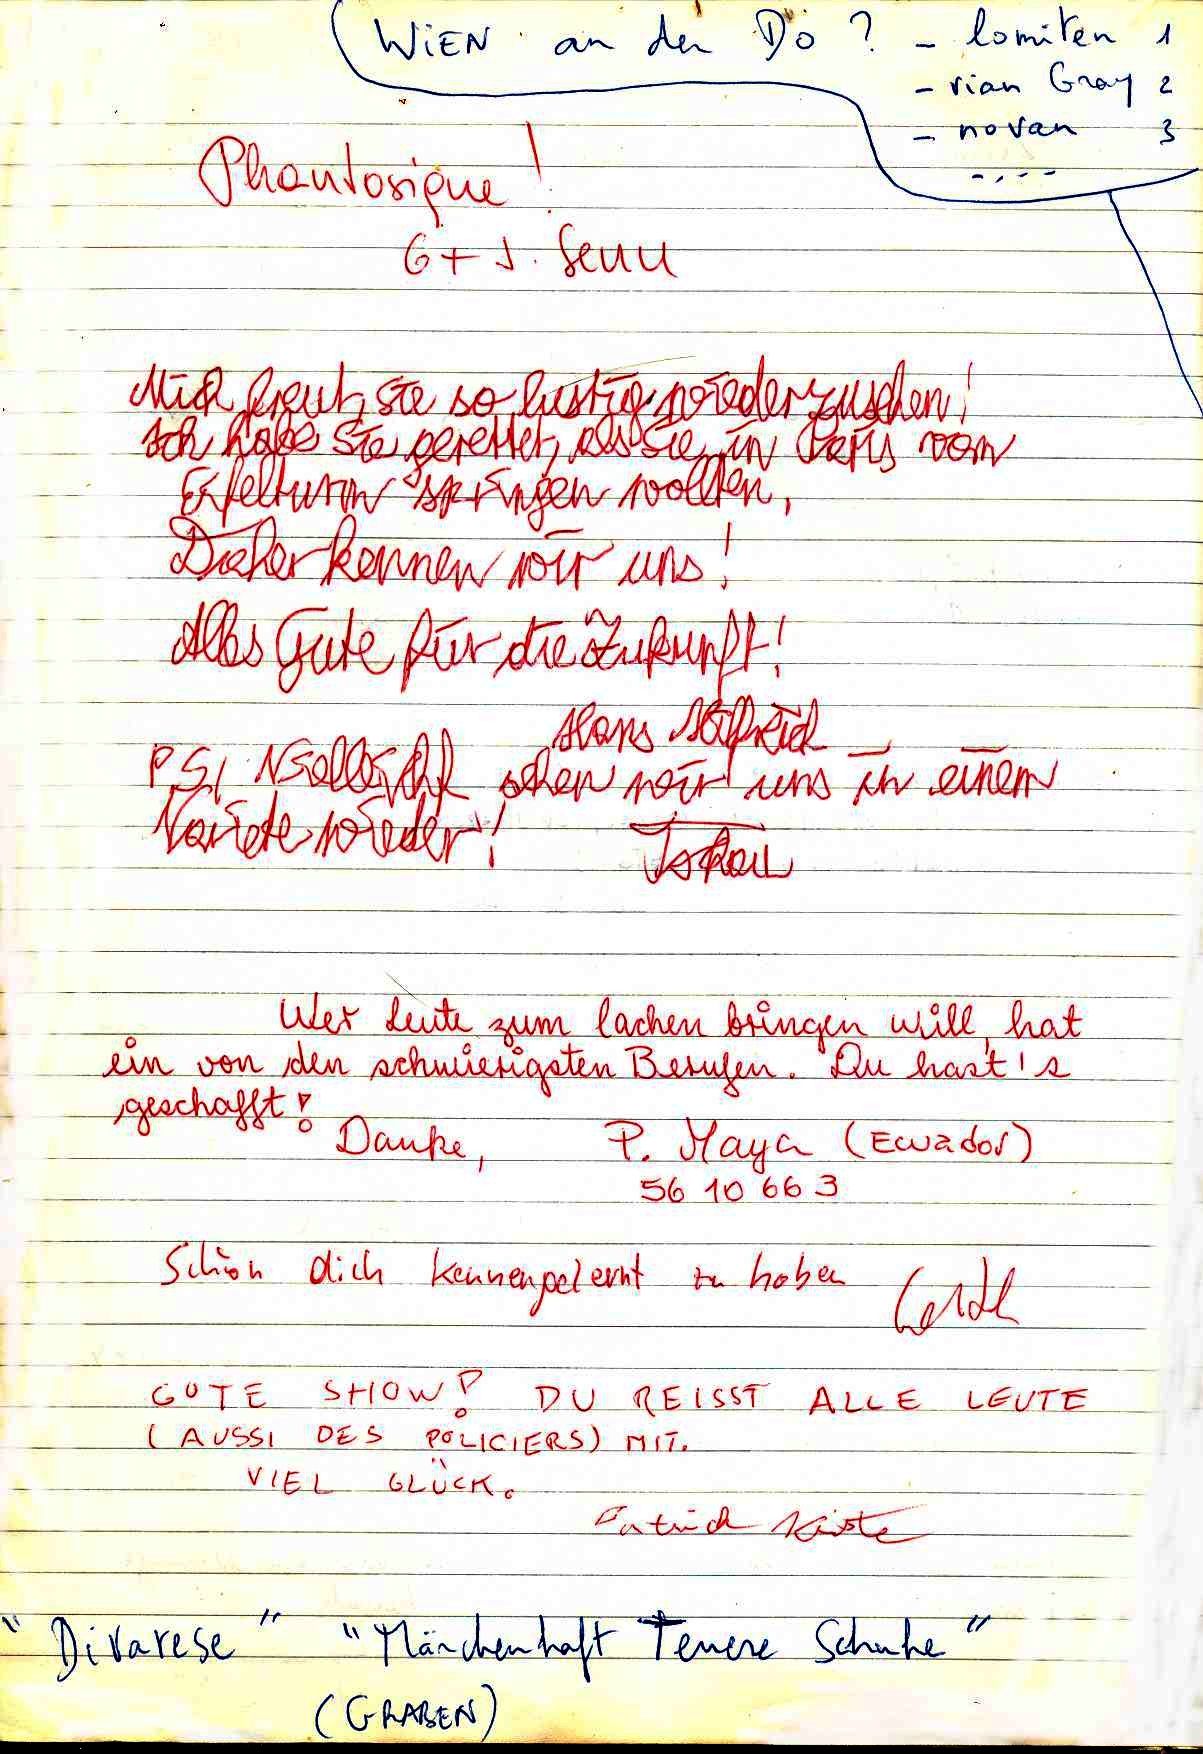 WiEN an der Do ? - lomiten 1
- rian Gray 2
- novan 3
-.--
Phantasique!
G + J. Senn
Mich freut, Sie so lustig wiederzusehen!
Ich habe Sie gerettet, als Sie in Paris vom
Eifelturm springen wollten,
Daher kennen wir uns!
Alles Gute für die Zukunft!
Hans
P.S. sehen wir uns in einem
Variete wieder!
Wer Leute zum lachen bringen will, hat
ein von den schwierigsten Berufen. Du hast's
geschafft!
Danke, P. Maya (Ecuador)
56 10 66 3
Schön dich kennengelernt zu haben
GUTE SHOW! DU REISST ALLE LEUTE
(AUSSI DES POLICIERS) MIT.
VIEL GLÜCK.
Patrick
"Divarese" "Märchenhaft Teuere Schuhe"
(GRABEN)